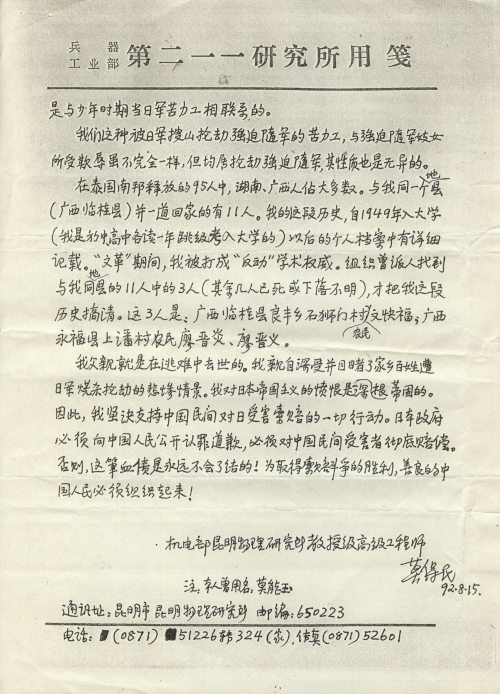 兵器
工业部 第二一一研究所用笺
是与少年时期当日军苦力工相联系的。
我们这种被日军搜山抢劫强迫随军的苦力工，与强迫随军妓女
所受欺辱虽不完全一样，但均属抢劫强迫随军，其性质也是无异的。
在泰国南邦释放的95人中，湖南、广西人佔大多数。与我同一个地县
(广西临桂县)并一道回家的有11人。我的这段历史，自1949年入大学
(我是初中高中各读一年跳级考入大学的)以后的个人档案中有详细
记载。“文革”期间，我被打成“反动”学术权威。组织曾派人找到
与我同地县的11人中的3人(其余几人已死或下落不明)，才把我这段
历史搞清。这3人是：广西临桂县良丰乡石狮门村农民文快福；广西
永福县上潘村农民廖晋炎、廖晋义。
我父亲就是在逃难中去世的。我亲自深受并目睹了家乡百姓遭
日军烧杀抢劫的悲惨情景。我对日本帝国主义的愤恨是深根蒂固的。
因此，我坚决支持中国民间对日受害索赔的一切行动。日本政府
必须向中国人民公开认罪道歉，必须对中国民间受害者彻底赔偿。
否则，这笔血债是永远不会了结的！为取得索赔斗争的胜利，善良的中
国人民必须组织起来！
机电部昆明物理研究所教授级高级工程师
莫保民
92.8.15.
注：本人曾用名，莫能玉
通讯址：昆明市昆明物理研究所 邮编：650223
电话：(0871) 51226转324(家)，传真(0871)52601